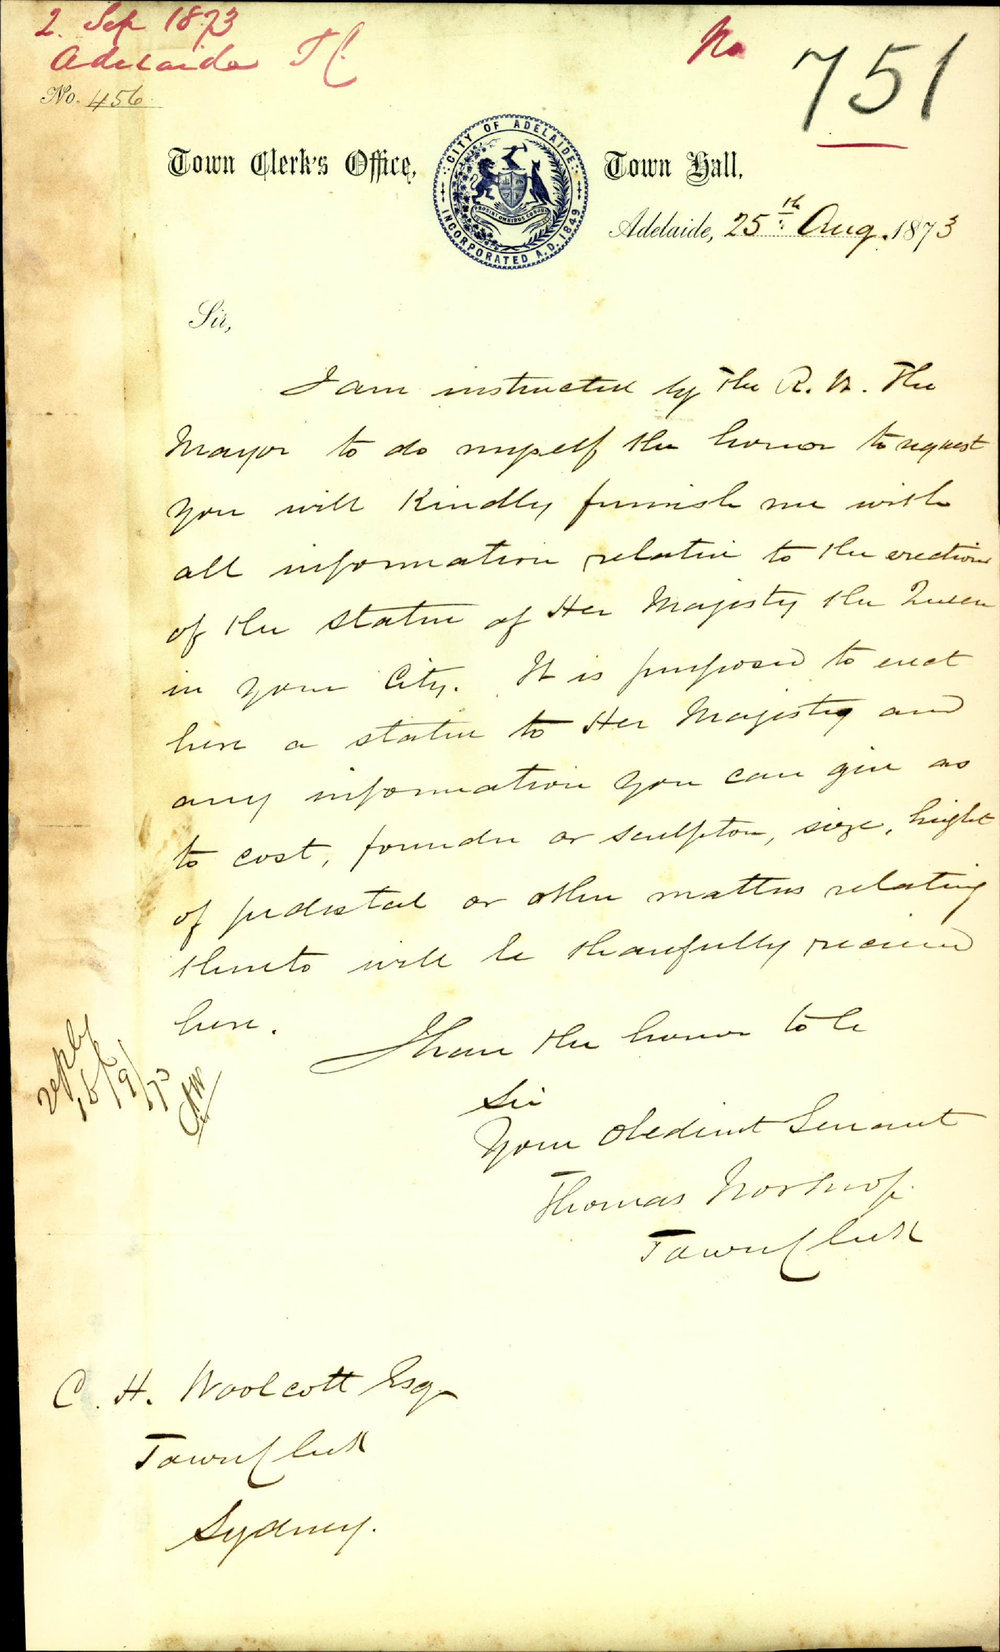 2. Sep 1873
Adelaide T C
No 751
No. 456
Town Clerk's Office,
CITY OF ADELAIDE
INCORPORATED A.D. 1849
Town Hall,
Adelaide, 25th Aug. 1873
Sir,
I am instructed by the R. W. The
Mayor to do myself the honor to request
you will kindly furnish me with
all information relative to the erection
of the statue of Her Majesty the Queen
in your City. It is purposed to erect
here a statue to Her Majesty and
any information you can give as
to cost, founder or sculptor, size, height
of pedestal or other matters relating
thereto will be thankfully received
here.
I have the honor to be
Sir
Your Obedient Servant
Thomas Worsnop.
Town Clerk
reply
16/9/73
C. H. Woolcott Esq
Town Clerk
Sydney.